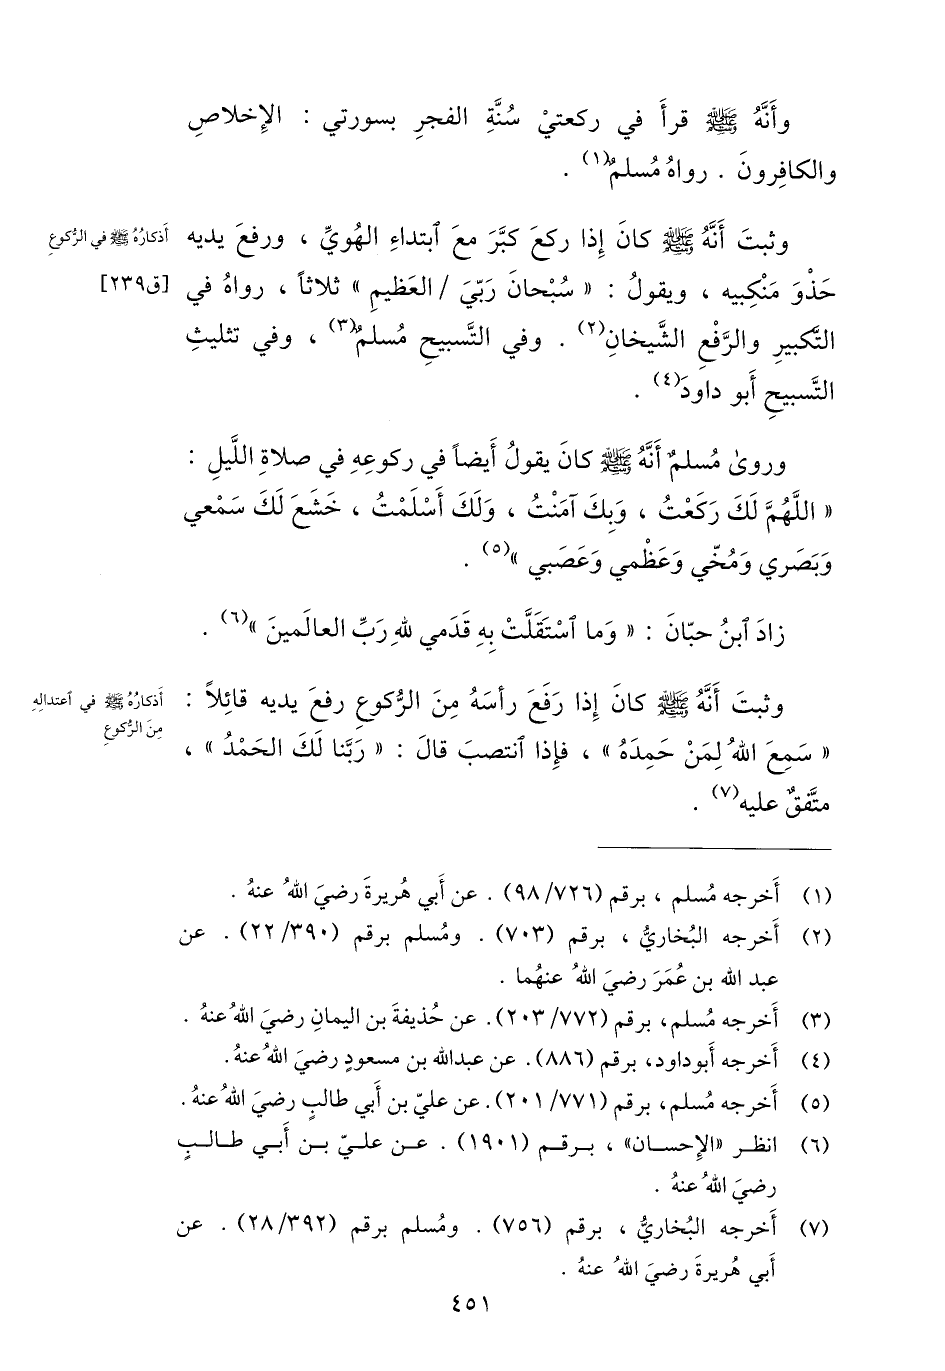 وأَنَّهُ ﷺ قرأَ في ركعتيْ سُنَّةِ الفجرِ بسورتي : الإِخلاصِ
والكافِرونَ . رواهُ مُسلمٌ(١) .
وثبتَ أَنَّهُ ﷺ كانَ إِذا ركعَ كبَّرَ معَ ٱبتداءِ الهُويِّ ، ورفعَ يديه
أَذكارُهُ ﷺ في الرُّكوعِ
حَذْوَ مَنْكِبيه ، ويقولُ : « سُبْحانَ رَبّيَ / العَظيمِ » ثلاثاً ، رواهُ في
[ق٢٣٩]
التَّكبيرِ والرَّفْعِ الشَّيخانِ(٢) . وفي التَّسبيحِ مُسلمٌ(٣) ، وفي تثليثِ
التَّسبيحِ أَبو داودَ(٤) .
وروىٰ مُسلمٌ أَنَّهُ ﷺ كانَ يقولُ أَيضاً في ركوعِهِ في صلاةِ اللَّيلِ :
« اللَّهُمَّ لَكَ رَكَعْتُ ، وَبِكَ آمَنْتُ ، وَلَكَ أَسْلَمْتُ ، خَشَعَ لَكَ سَمْعي
وَبَصَري وَمُخّي وَعَظْمي وَعَصَبي »(٥) .
زادَ ٱبنُ حبّانَ : « وَما ٱسْتَقَلَّتْ بِهِ قَدَمي للهِ رَبِّ العالَمينَ »(٦) .
وثبتَ أَنَّهُ ﷺ كانَ إِذا رَفَعَ رأسَهُ مِنَ الرُّكوعِ رفعَ يديه قائِلاً :
أَذكارُهُ ﷺ في ٱعتدالِهِ
مِنَ الرُّكوعِ
« سَمِعَ اللهُ لِمَنْ حَمِدَهُ » ، فإِذا ٱنتصبَ قالَ : « رَبَّنا لَكَ الحَمْدُ » ،
متَّفقٌ عليه(٧) .
(١) أَخرجه مُسلم ، برقم (٩٨/٧٢٦) . عن أَبي هُريرةَ رضيَ اللهُ عنهُ .
(٢) أَخرجه البُخاريُّ ، برقم (٧٠٣) . ومُسلم برقم (٢٢/٣٩٠) . عن
عبد الله بن عُمَرَ رضيَ اللهُ عنهُما .
(٣) أَخرجه مُسلم، برقم (٢٠٣/٧٧٢). عن حُذيفةَ بن اليمانِ رضيَ اللهُ عنهُ .
(٤) أَخرجه أَبوداود، برقم (٨٨٦). عن عبدالله بن مسعودٍ رضيَ اللهُ عنهُ.
(٥) أَخرجه مُسلم، برقم (٢٠١/٧٧١). عن عليّ بن أَبي طالبٍ رضيَ اللهُ عنهُ.
(٦) انظر «الإِحسان» ، برقم (١٩٠١) . عن عليّ بن أَبي طالبٍ
رضيَ اللهُ عنهُ .
(٧) أَخرجه البُخاريُّ ، برقم (٧٥٦) . ومُسلم برقم (٢٨/٣٩٢) . عن
أَبي هُريرةَ رضيَ اللهُ عنهُ .
٤٥١